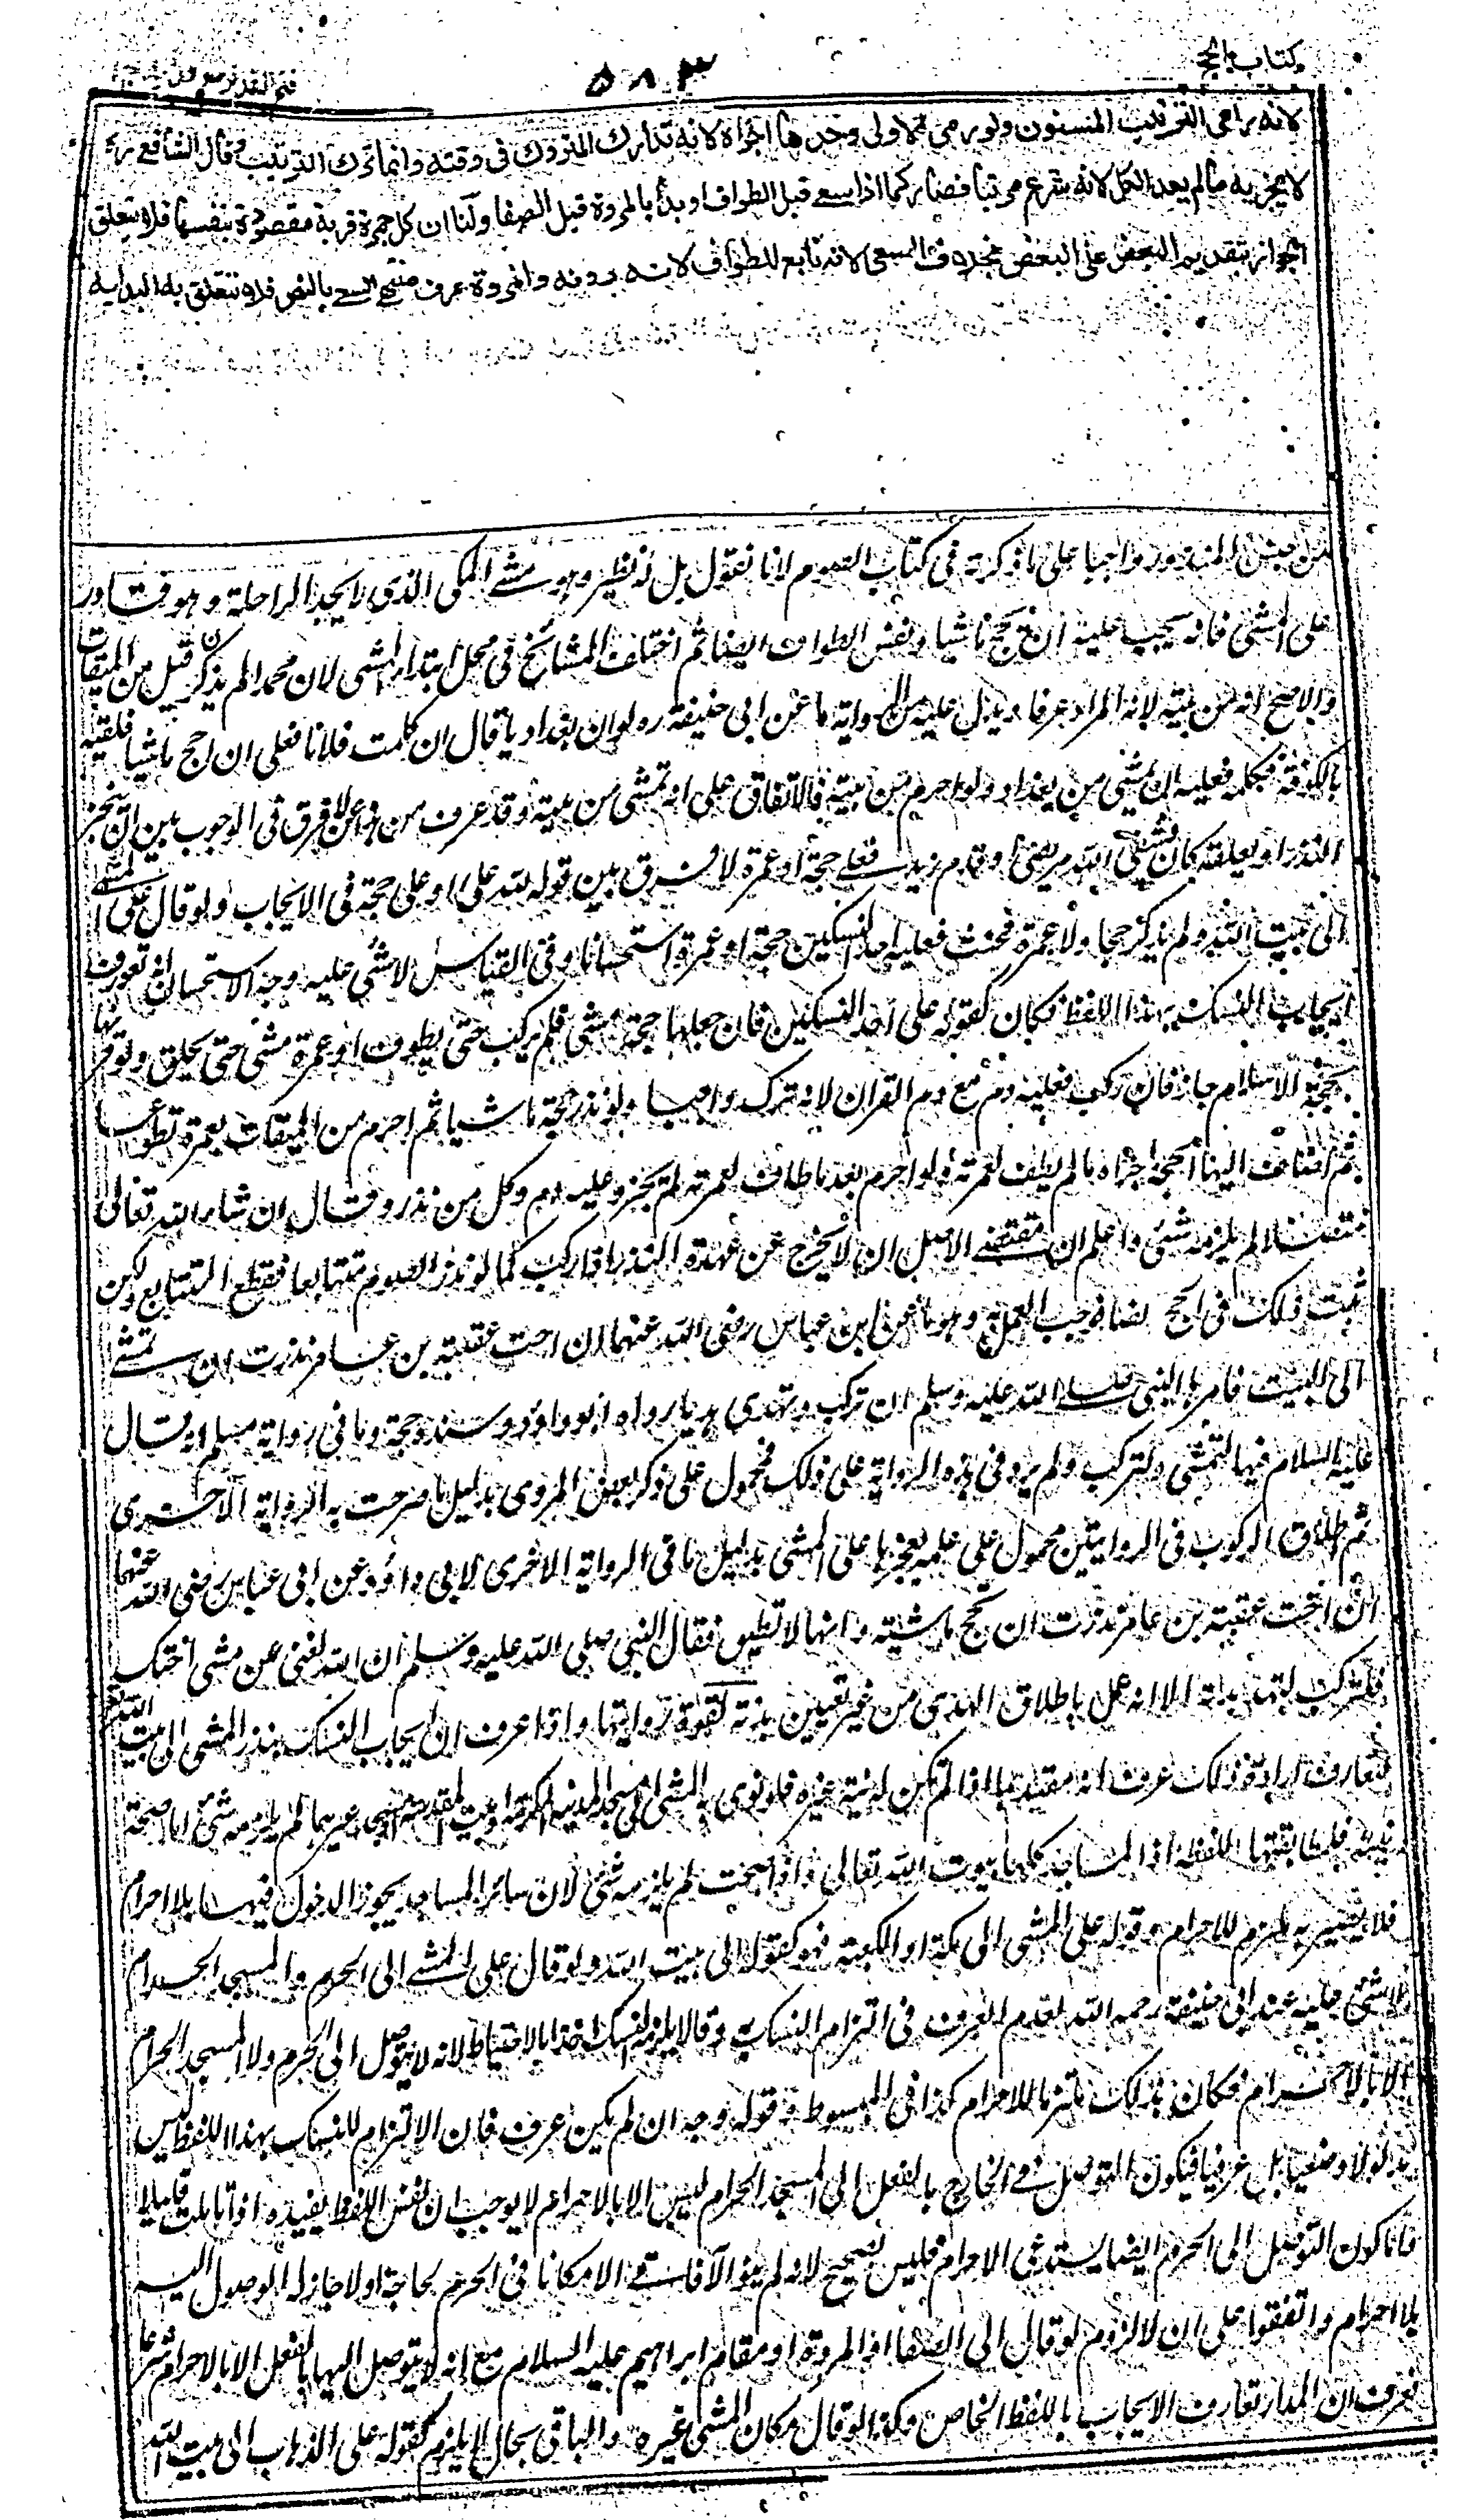 كتاب الحج
٥٨٣
فتح القدير مع
لانه راعى الترتيب المسنون ولو رمى الاولى وحدها اجزاه لانه تدارك المتروك فى وقته وانما ترك الترتيب وقال الشافعى رح
لا يجزيه ما لم يعد الكل لانه شرع مرتبا فصار كما اذا سعى قبل الطواف او بدأ بالمروة قبل الصفا ولنا ان كل جمرة قربة مقصودة بنفسها فلا يتعلق
الجواز بتقديم البعض على البعض بخلاف السعى لانه تابع للطواف لانه دونه والمروة عرف منتهى السعى بالنص فلا تتعلق به البداية
من جنس المنذور واجبا على ما ذكرته فى كتاب الصوم لانا نقول بل له نظير وهو مشى المكى الذى لا يجد الراحلة وهو قادر
على المشى فانه يجب عليه ان يحج ماشيا ونفس الطواف ايضا ثم اختلف المشائخ فى محل ابتداء المشى لان محمدا لم يذكره قيل من الميقات
والاصح انه من بيته لانه المراد عرفا ويدل عليه من الرواية ما عن ابى حنيفة ره لو ان بغداديا قال ان كلمت فلانا فعلى ان احج ماشيا فلقيه
بالكوفة فكلمه فعليه ان يمشى من بغداد ولو احرم من بيته فالاتفاق على انه يمشى من بيته وقد عرف من هذا ان لا فرق فى الوجوب بين ان ينجز
النذر او يعلقه كان شفى الله مريضى او قدم زيد فعلى حجة او عمرة لا فرق بين قوله لله على او على حجة فى الايجاب ولو قال على المشى
الى بيت الله ولم يذكر حجا ولا عمرة فحنث فعليه احد النسكين حجة او عمرة استحسانا وفى القياس لا شئ عليه وجه الاستحسان انه تعورف
ايجاب النسك بهذا اللفظ فكان كقوله على احد النسكين فان جعلها حجة مشى فلم يركب حتى يطوف او عمرة مشى حتى يحلق ولو قرنها
بحجة الاسلام جاز فان ركب فعليه دم مع دم القران لانه ترك واجبا ولو نذر حجة ماشيا ثم احرم من الميقات بعمرة تطوعا
ثم اضاف اليها الحجة اجزاه ما لم يطف لعمرته ولو احرم بعد ما طاف لعمرته لم يجزه وعليه دم وكل من نذر وقال ان شاء الله تعالى
متصلا لم يلزمه شئ واعلم ان مقتضى الاصل ان لا يخرج عن عهدة النذر اذا ركب كما لو نذر الصوم متتابعا فقطع التتابع ولكن
ثبت ذلك فى الحج نصا فوجب العمل به وهو ما عن ابن عباس رضى الله عنهما ان اخت عقبة بن عامر نذرت ان تمشى
الى البيت فامرها النبى صلى الله عليه وسلم ان تركب وتهدى هديا رواه ابو داود وسنده حجة وما فى رواية مسلم انه قال
عليه السلام فيها لتمشى ولتركب ولم يزد فى هذه الرواية على ذلك فمحمول على ذكر بعض المروى بدليل ما صرحت به الرواية الاخرى
ثم اطلاق الركوب فى الروايتين محمول على علمه بعجزها على المشى بدليل ما فى الرواية الاخرى لابى داود عن ابن عباس رضى الله عنهما
ان اخت عقبة بن عامر نذرت ان تحج ماشية وانها لا تطيق فقال النبى صلى الله عليه وسلم ان الله لغنى عن مشى اختك
فلتركب لتهد بدنة الا انه عمل باطلاق الهدى من غير تعيين بدنة لقوة روايتها واذا عرف ان ايجاب النسك بنذر المشى الى بيت الله تعالى
لتعارف ارادة ذلك عرف انه مقيد بما اذا لم تكن له نية غيره فلو نوى بالمشى الى مسجد المدينة المكرمة او بيت المقدس او مسجد غيرهما لم يلزمه شئ اما صحة
نيته فلمطابقتها اللفظ اذ المساجد كلها بيوت الله تعالى واذا صحت لم يلزمه شئ لان سائر المساجد يجوز الدخول فيها بلا احرام
فلا يصير به ملتزم للاحرام وقوله على المشى الى مكة او الكعبة فهو كقوله الى بيت الله ولو قال على المشى الى الحرم والمسجد الحرام
لا شئ عليه عند ابى حنيفة رحمه الله لعدم العرف فى التزام النسك به وقالا يلزمه النسك اخذا بالاحتياط لانه لا يتوصل الى الحرم ولا المسجد الحرام
الا بالاحرام فكان بذلك ملتزما للاحرام كذا فى المبسوط وقوله وجه ان لم يكن عرف فان الالتزام للنسك بهذا اللفظ ليس
مدلولا وضعيا بل عرفيا فيكون التوصل فى الخارج بالفعل الى المسجد الحرام ليس الا بالاحرام لا يوجب ان نفس اللفظ يفيده اذا تأملت قليلا
فاما كون التوصل الى الحرم ايضا يستدعى الاحرام فليس بصحيح لانه لم ينو الآفاقى الا مكانا فى الحرم لحاجة اولا جاز له الوصول اليه
بلا احرام واتفقوا على ان لا لزوم لو قال الى الصفا او المروة او مقام ابراهيم عليه السلام مع انه لا يتوصل اليها بالفعل الا بالاحرام شرعا
فعرف ان المدار تعارف الايجاب باللفظ الخاص وكذا لو قال مكان المشى غيره والباقى بحاله لا يلزم كقوله على الذهاب الى بيت الله